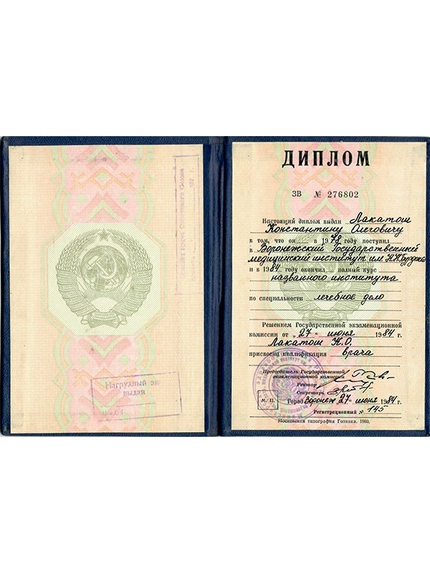 Нагрудный знак
выдан
ДИПЛОМ
ЗВ № 276802
Настоящий диплом выдан Лакатош
Константину Олеговичу
в том, что он в 1978 году поступил
в Воронежский Государственный
медицинский институт им Н.Н.Бурденко
и в 1984 году окончил полный курс
названного института
по специальности лечебное дело
Решением Государственной экзаменационной
комиссии от 27 июня 1984 г.
Лакатош К.О.
присвоена квалификация врача
Председатель Государственной
экзаменационной комиссии
Ректор
Секретарь
М. П.
Город Воронеж 27 июня 1984 г.
Регистрационный № 145
Московская типография Гознака. 1980.